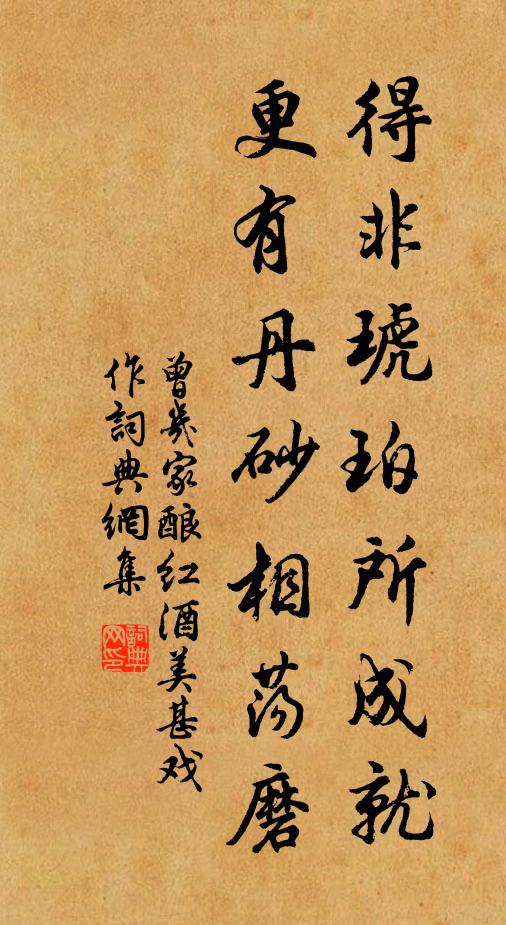 得非琥珀所成就
更有丹砂相荡磨
曾幾家酿红酒美甚戏
作詞典網集
詞典
网印